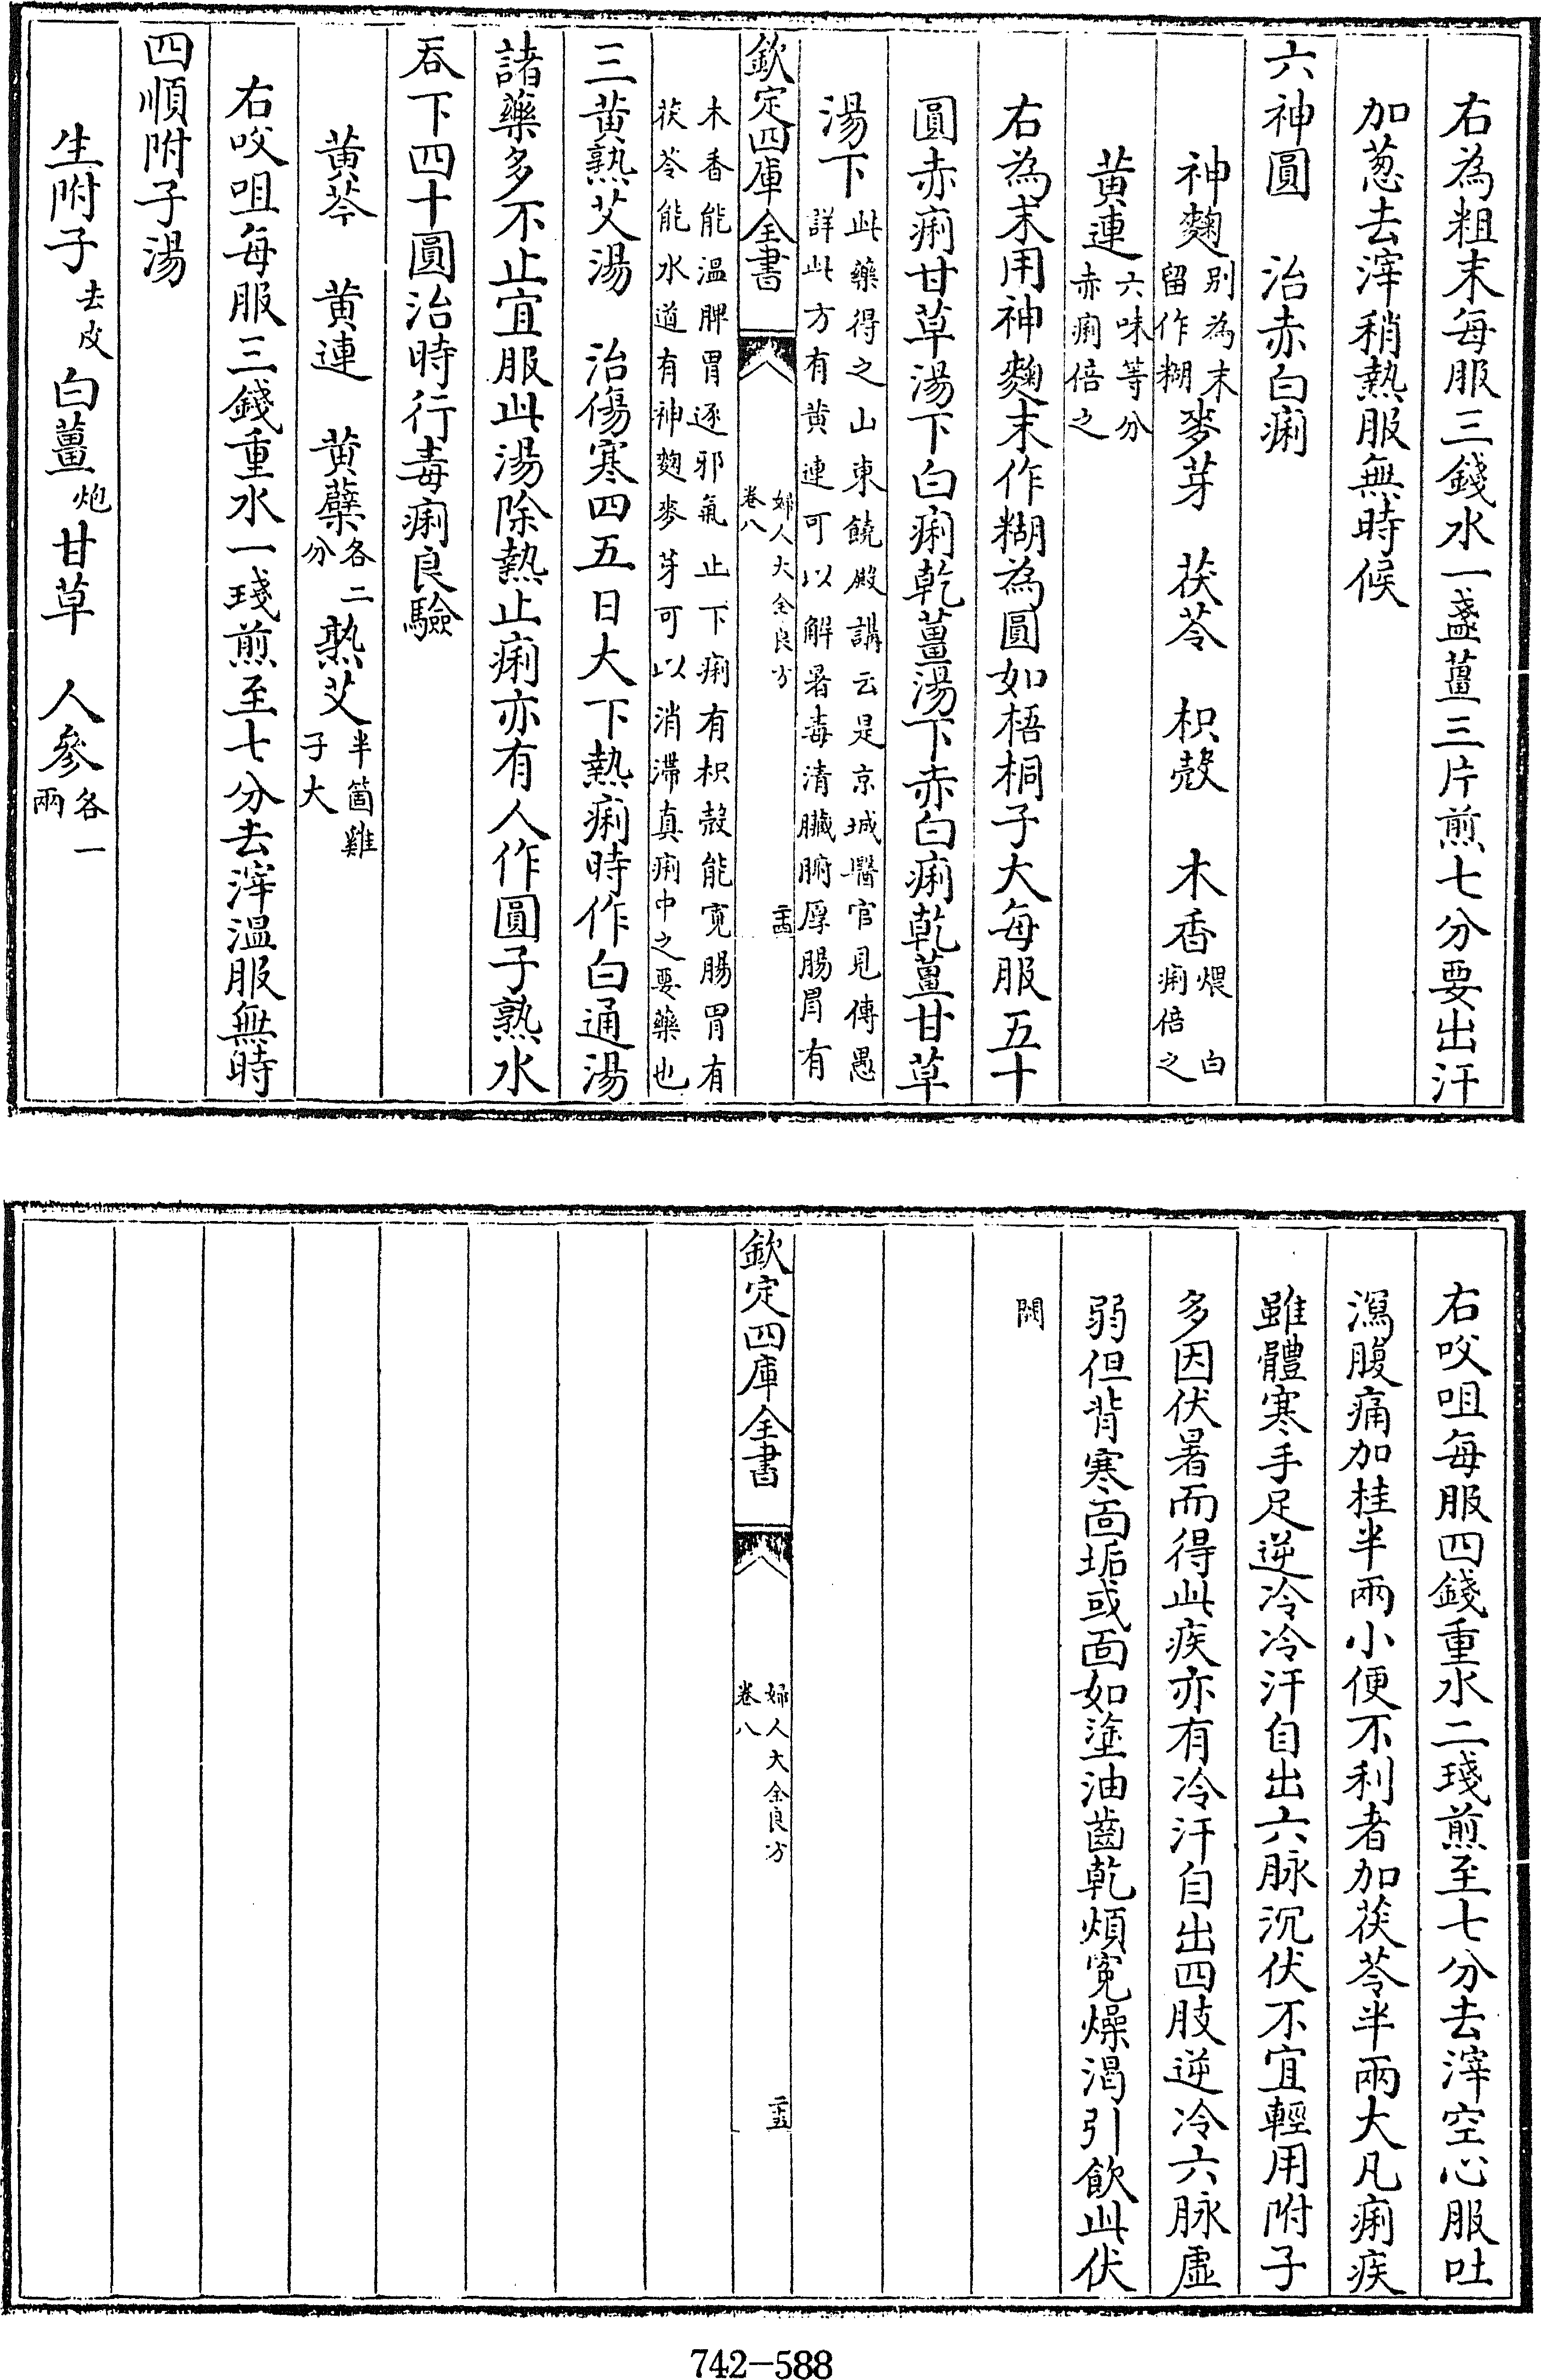 右為粗末每服三錢水一盞薑三片煎七分要出汗
加葱去滓稍熱服無時候
六神圓　治赤白痢
神麴別為末留作糊麥芽　茯苓　枳殼　木香煨白痢倍之
黄連六味等分赤痢倍之
右為末用神麴末作糊為圓如梧桐子大每服五十
圓赤痢甘草湯下白痢乾薑湯下赤白痢乾薑甘草
湯下此藥得之山東饒殿講云是京城醫官見傳愚詳此方有黄連可以解暑毒清臓腑厚腸胃有
欽定四庫全書
婦人大全良方
卷八
二十四
木香能溫脾胃逐邪氣止下痢有枳殼能寛腸胃有茯苓能水道有神麴麥芽可以消滯真痢中之要藥也
三黄熟艾湯　治傷寒四五日大下熱痢時作白通湯
諸藥多不止宜服此湯除熱止痢亦有人作圓子熟水
吞下四十圓治時行毒痢良驗
黄芩　黄連　黄蘗各二分熟艾半箇雞子大
右㕮咀每服三錢重水一琖煎至七分去滓溫服無時
四順附子湯
生附子去皮白薑炮甘草　人參各一兩
右㕮咀每服四錢重水二琖煎至七分去滓空心服吐
瀉腹痛加桂半兩小便不利者加茯苓半兩大凡痢疾
雖體寒手足逆冷冷汗自出六脉沉伏不宜輕用附子
多因伏暑而得此疾亦有冷汗自出四肢逆冷六脉虚
弱但背寒面垢或面如塗油齒乾煩冤燥渴引飲此伏
闕
欽定四庫全書
婦人大全良方
卷八
二十五
742-588